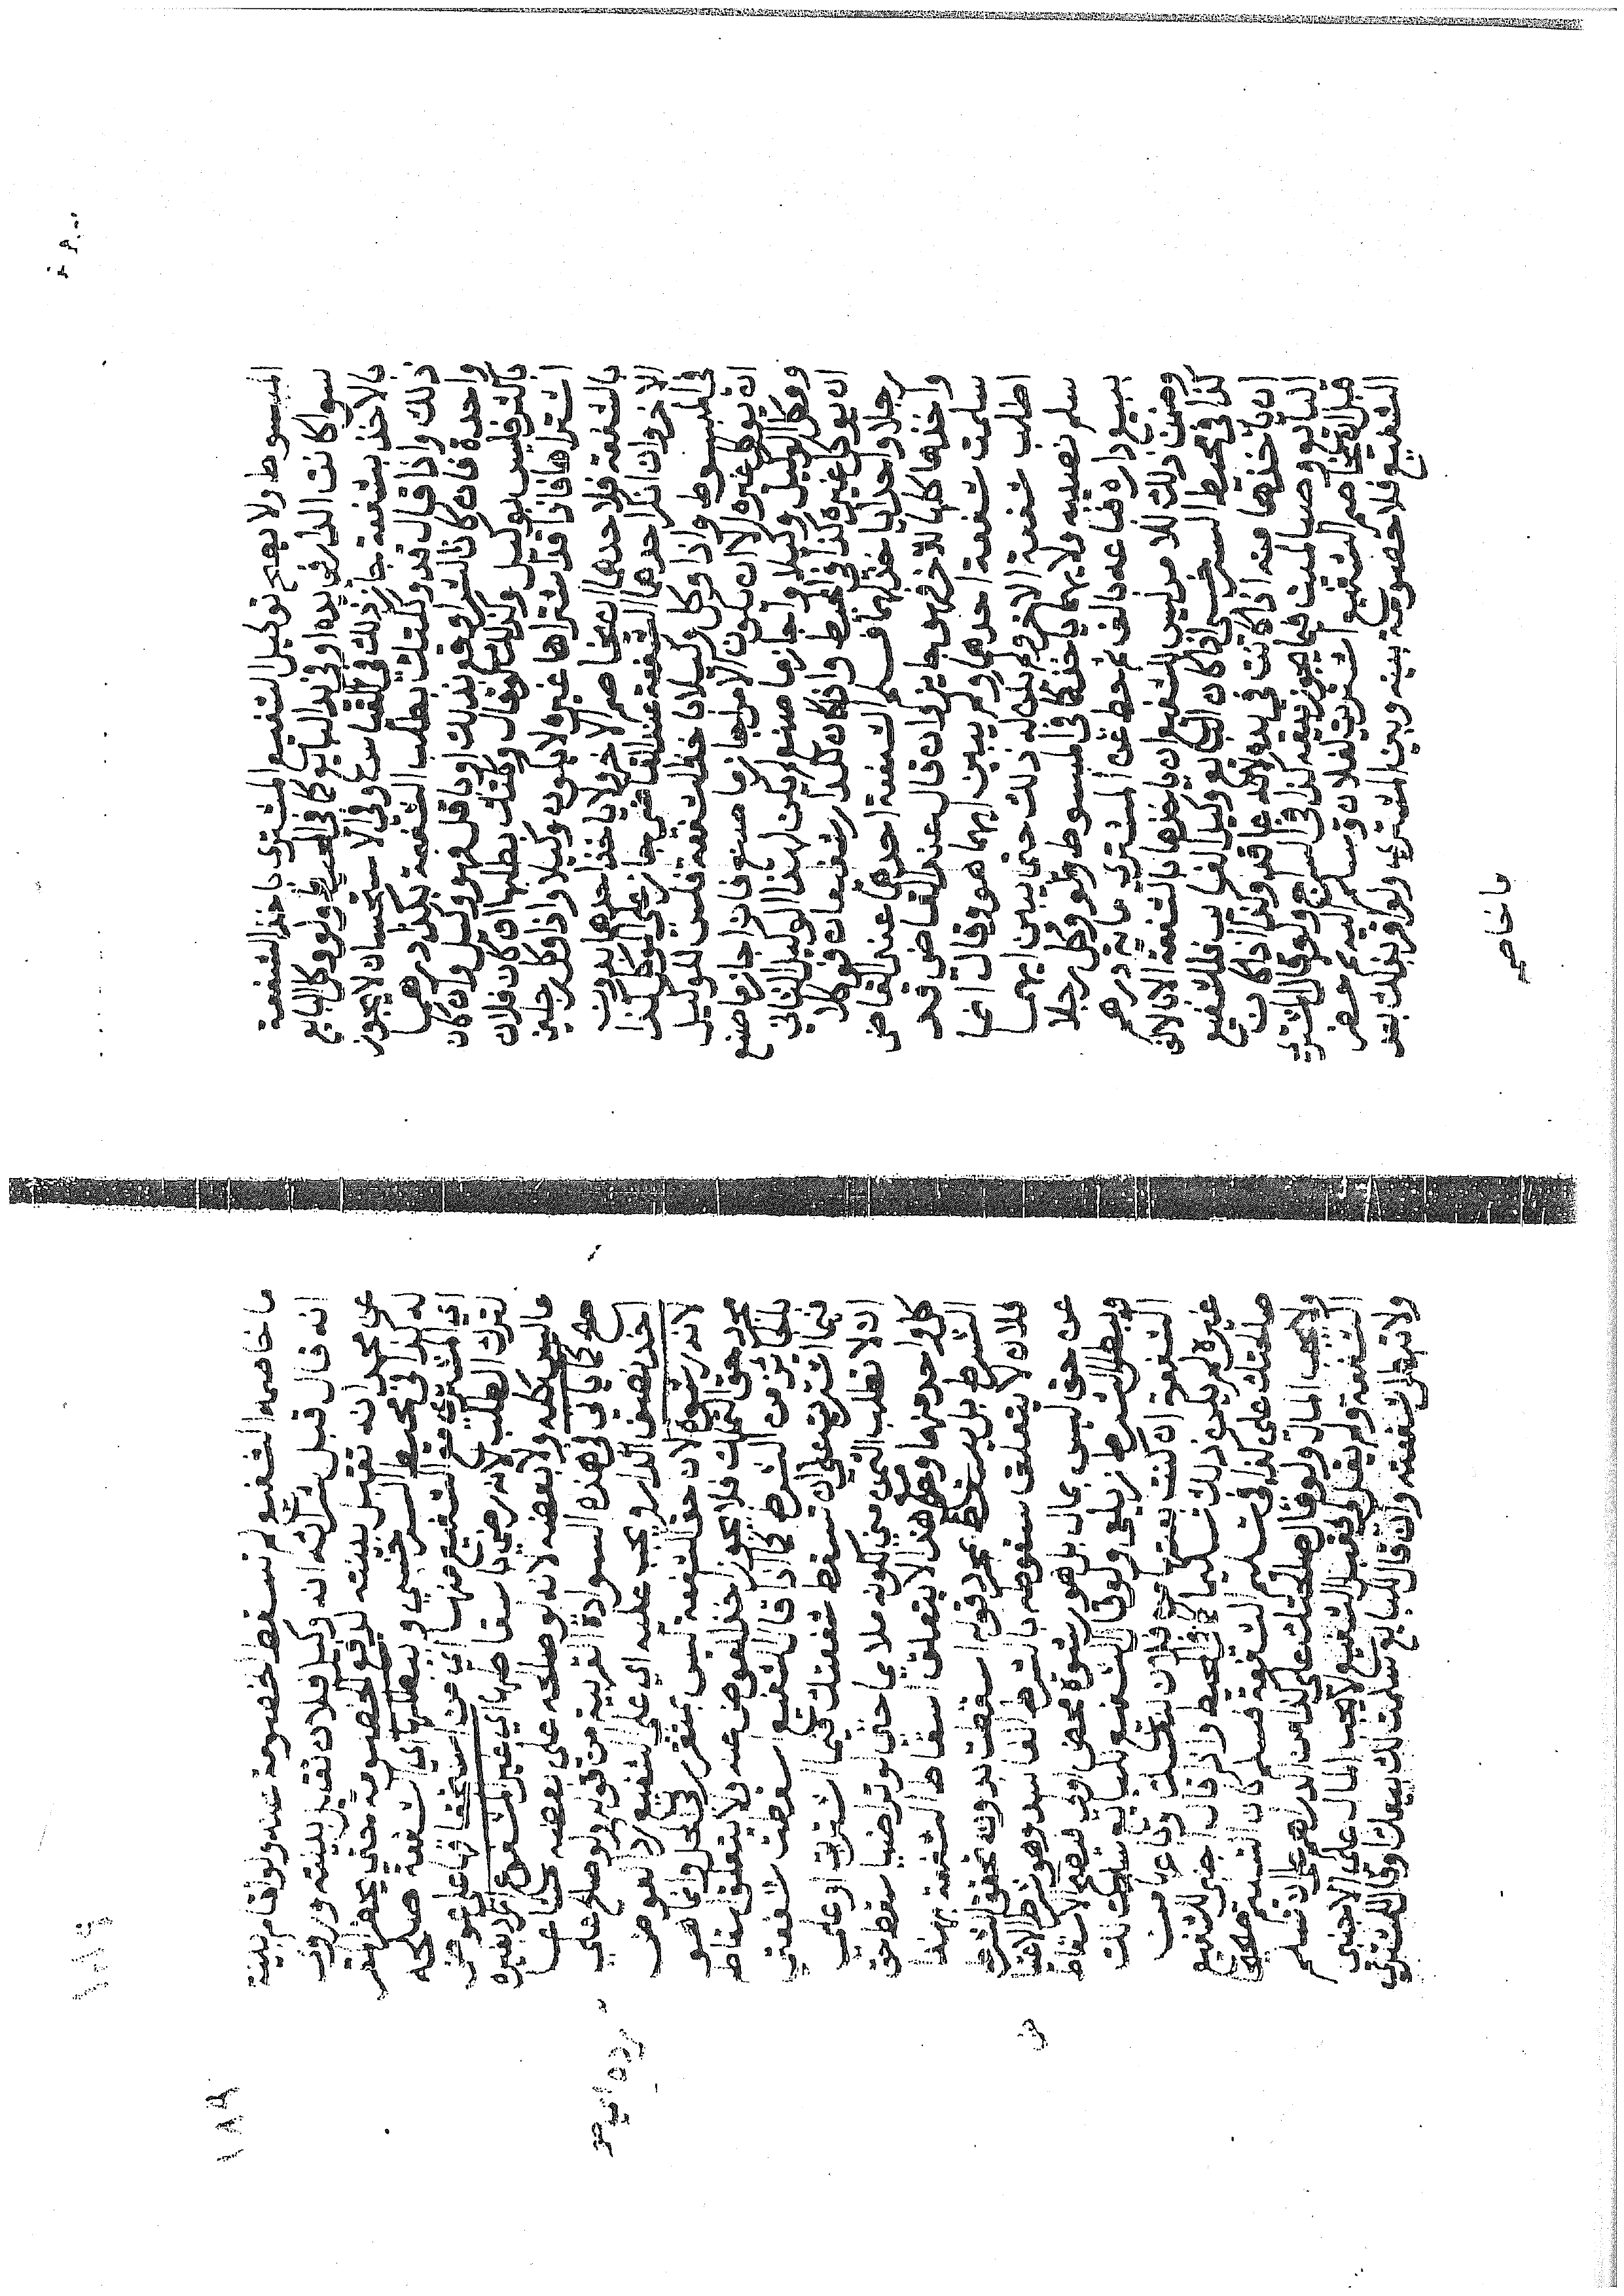 ٠٩٠
المبسوط ولا يصح توكيل الشفيع المشتري باخذ الشفعة
سوا كانت الدار في يده او في يد البايع كما في المحيط ولو وكل البايع
بالاخذ بشفعته جاز ذلك في القياس وفي الاستحسان لا يجوز
ذلك واذا قال قد وكلتك بطلب الشفعة بكذا درهما
واحدة فان كان الشرا وقع بذلك او باقل فهو وكيل وان كان
باكثر فليس بوكيل وكذلك لو قال وكلتك بطلبها ان كان فلان
اشتراها فاذا قد اشتراها غيره لا يكون وكيلا واذا وكل رجلين
بالشفعة فلاحدهما ان يخاصم الاخر ولا ياخذ احدهما بدون
الاخر وان احدهما الشفعة عند القاضي جاز على الموكل كذا
في المبسوط واذا وكل وكيلا باخذ شفعة فليس للوكيل
ان يوكل غيره الا ان يكون الامر اجاز ما صنع فان اجاز ما صنع
ووكل الوكيل وكيلا واجاز ما صنع لم يكن لهذا الوكيل الثاني
ان يوكل غيره كذا في المحيط واذا كان للدار شفيعان فوكلا
رجلا واحدا ياخذ لهما فسلم الشفعة احدهما عند القاضي
واخذها كلها للاخر فهو جايز وان قال عند القاضي قد
سلمت شفعة احدهما ولم يبين ايهما هو وقال انما
اطلب شفعة الاخر لم يكن له ذلك حتى يبين ايهما
سلم نصيبه ولايهما ياخذ كذا في المبسوط ولو وكل رجلا
ببيع داره فباعه بالف ثم حط عن المشتري ماية درهم
وضمن ذلك للامر ليس للشفيع ان ياخذها بالشفعة الا بالالف
كذا في محيط السرخسي اذا كان البايع وكيل الغايب فللشفيع
ان ياخذها منه اذا كانت في يده لانه عاقد وكذا اذا كان
البايع وصيا لميت فيما يجوز بيعه كذا في السراج ولو قال المشتري
قبل ان يخاصم الشفيع اشتريت لفلان وسلم اليه ثم حضر
الشفيع فلا خصومة بينه وبين المشتري ولو اقر بذلك بعد
ما خاصمه
١٨٩
ما خاصمه الشفيع لم تسقط الخصومة عنه ولو اقام بينة
انه قال قبل شرائه انه وكيل فلان تقبل بينته وروي
عن محمد انه تقبل بينته لدفع الخصومة حتى يحضر المقر
له كذا في محيط السرخسي ويبطلها اي الشفعة صلحه
اي المشتري مع الشفيع منها اي من استحقاقها على عوض
لترك الطلب لانه رضي باسقاطها اي غير المشفوع
ما ليس كله ولا بعضه لانه لو صلحه على بعضه
صح كما ياتي في هذه السوادة القريبة من قوله ولو صلح على
اخذ نصف الدار ويجب عليه اي على الشفيع رد العوض
لانه رشوة لان حق الشفعة ليس بمتقرر في المحل وانما هو
مجرد حق التملك فلا يجوز اخذ العوض عنه ولا يتعلق اسقاطه
بالجائز من الشرط كما اذا قال الشفيع اسقطت شفعتي
فيما اشتريت على ان تسقط شفعتك فيما اشتريت او على
ان لا تطلب الثمن مني لكونه ملايما حتى لو تراضيا سقط حق
كل واحد منهما ومع هذا لا يتعلق اسقاط الشفعة بهذا
الشرط بل يسقط بمجرد قوله اسقطت بدون تحقق الشرط
فلان لا يتعلق سقوطه بالشرط الفاسد وهو شرط الاعتياض
عن حق ليس بمال بل هو رشوة محض اولى فيصح الاسقاط
ويبطل الشرط زيلعي ولو قال الشفيع للبايع سلمت لك
الشفعة ان كنت بعتها من فلان لنفسك وباعها من
غيره لم يكن ذلك تسليما كذا في المحيط واذا قال اجنبي للشفيع
صالحتك على كذا على ان تسلم الشفعة فسلم كان التسليم صحيحا
ولا يجب المال ولو قال صالحتك على كذا من الدراهم على ان تسلم
الشفعة ولم يقل لي فقبل الشفيع لا يجب المال على الاجنبي
ولا تبطل شفعته وان قال للبايع سلمت لك بيعك او قال للمشتري